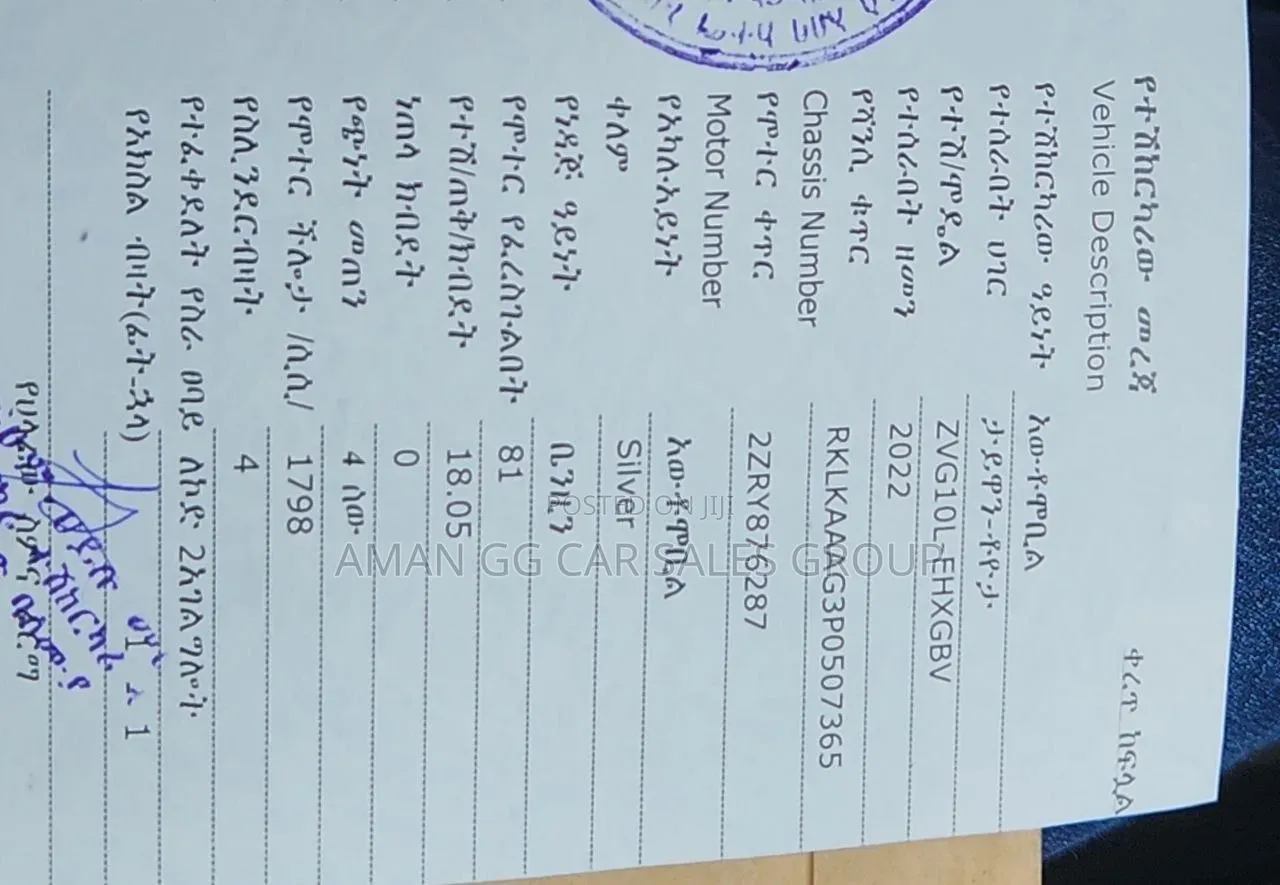 ቀረጥ ከፍሏል
የተሽከርካሪው መረጃ
Vehicle Description
የተሽከርካሪው ዓይነት አውቶሞቢል
የተሰራበት ሀገር ታይዋን-ቶዮታ
የተሽ/ሞዴል ZVG10L-EHXGBV
የተሰራበት ዘመን 2022
የሻንሲ ቁጥር
Chassis Number RKLKAAAG3P0507365
የሞተር ቀጥር 2ZRY876287
Motor Number
የአካሉ አይነት አውቶሞቢል
ቀለም Silver
የነዳጅ ዓይነት ቤንዚን
የሞተር የፈረስጉልበት 81
የተሽ/ጠቅ/ክብደት 18.05
ነጠላ ክብደት 0
የጭነት መጠን 4 ሰው
የሞተር ችሎታ /ሲሲ/ 1798
የሲሊንደር ብዛት 4
የተፈቀደለት የስራ ፀባይ ለኮድ 2 አገልግሎት
የአክስል ብዛት(ፊት-ኋላ) 1 ኋ 1
POSTED ON JIJI
AMAN GG CAR SALES GROUP